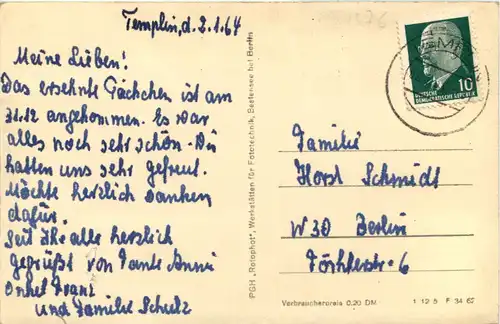 Templin, d. 2.1.64
Meine Lieben!
Das ersehnte Päckchen ist am
31.12 angekommen. Es war
alles noch sehr schön. Wir
hatten uns sehr gefreut.
Möchte herzlich danken
dafür.
Seit Ihr alle herzlich
gegrüßt von Tante Anni
Onkel Franz
und Familie Schulz
PGH „Rotophot", Werkstätten für Fototechnik, Bestensee bei Berlin
10
DEUTSCHE
DEMOKRATISCHE REPUBLIK
Familie
Horst Schmidt
W 30 Berlin
Verbraucherpreis 0,20 DM
1 12 5 F 34 62